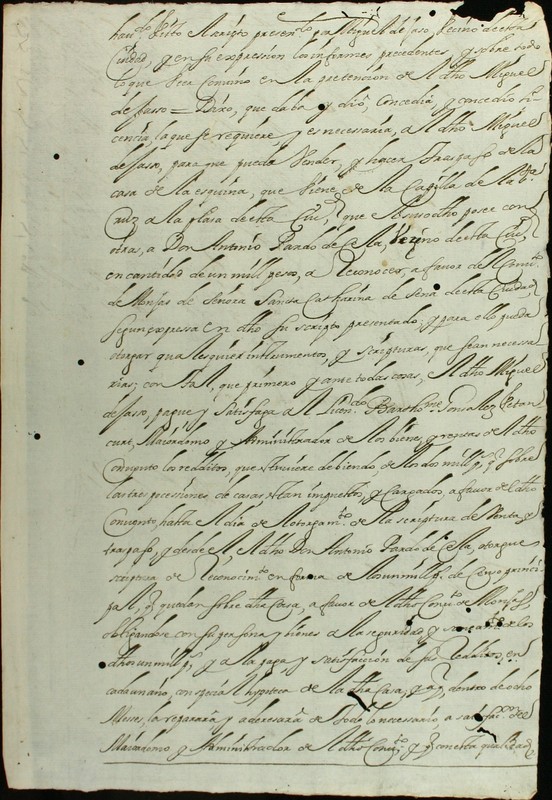 hauido Visto el escripto presentdo por Miguel de Jaso, Vecino de esta
Ciudad, y en su expression los informes precedentes, y sobre todo
lo que Ver Convino en la pretencion de el dho Miguel
de Jasso = Dixo, que daba y dio, Concedia, y concedio li
cencia, la que se requiere, y es necessaria, a el dho Miguel
de Jasso, para que pueda Vender, y hacer traspaso de la
casa de la esquina, que Viene de la Capilla de la Sta
Cruz a la plasa de esta Ciud, que el susodho posee con
otras, a Don Antonio Pardo de Cela, Vezino de esta Ciud,
en cantidad de un mill pesos, a Reconocer, a favor de el Convto
de Monjas de Señora Santa Catharina de Sena de esta Ciudad,
segun expressa en dho su scripto presentado; y para ello pueda
otorgar qualesquier instrumentos, y scripturas, que sean necessa
rias; con tal, que primero y ante todas cosas, el dho Miguel
de Jasso, pague y Satisfaga a el Licendo Bartholme Gonsalez Betan
curt, Mayordomo y Administrador de los bienes, y rentas de el dho
Convento los redditos, que estuviere debiendo de los dos mill ps q sobre
las tres pocessiones de casas estan impuestos, y Cargados, a favor de el dho
Convento hasta el dia de el otorgamto de la scriptura de Venta, y
traspaso, y desde el, el dho Don Antonio Pardo de Cela, otorgue
scriptura de Reconocimto en forma de los un mill ps de Censo princi
pal, q quedan sobre dha Casa, a favor de el dho Convto de Monjas,
obligandose con su persona y bienes a la seguridad y saneamto de los
dhos un mill ps, y a la paga y satisfaccion de sus Redditos, en
cada un año, con special hypoteca de la dha casa, y a q dentro de ocho
Meses, la reparará y adresará de todo lo necessario a satisfacon de el
Mayordomo y Administrador de el dho Convto, y q con esta qualidad